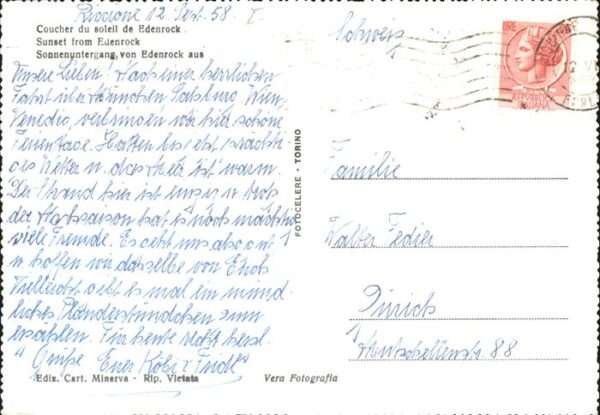 Riccione 12. Sept. 58.
Coucher du soleil de Edenrock
Sunset from Edenrock
Sonnenuntergang von Edenrock aus
Schweiz
Unsere Lieben! Nach einer herrlichen
Fahrt über München Salzburg Wien,
Venedig, verbringen wir hier schöne
Ferientage. Hatten bis jetzt prächti-
ges Wetter u. das Meer ist warm.
Der Strand hier ist u. trotz
der Nachsaison hat es noch mächtig
viele Fremde. Es geht uns also gut
u. hoffen wir dasselbe von Euch
Vielleicht gibt es mal ein münd-
liches Plauderstündchen zum
erzählen. Für heute recht herzl.
Grüsse Eure Köbi u. Trudi
FOTOCELERE - TORINO
Familie
Walter
Zürich
88
Ediz. Cart. Minerva - Rip. Vietata
Vera Fotografia